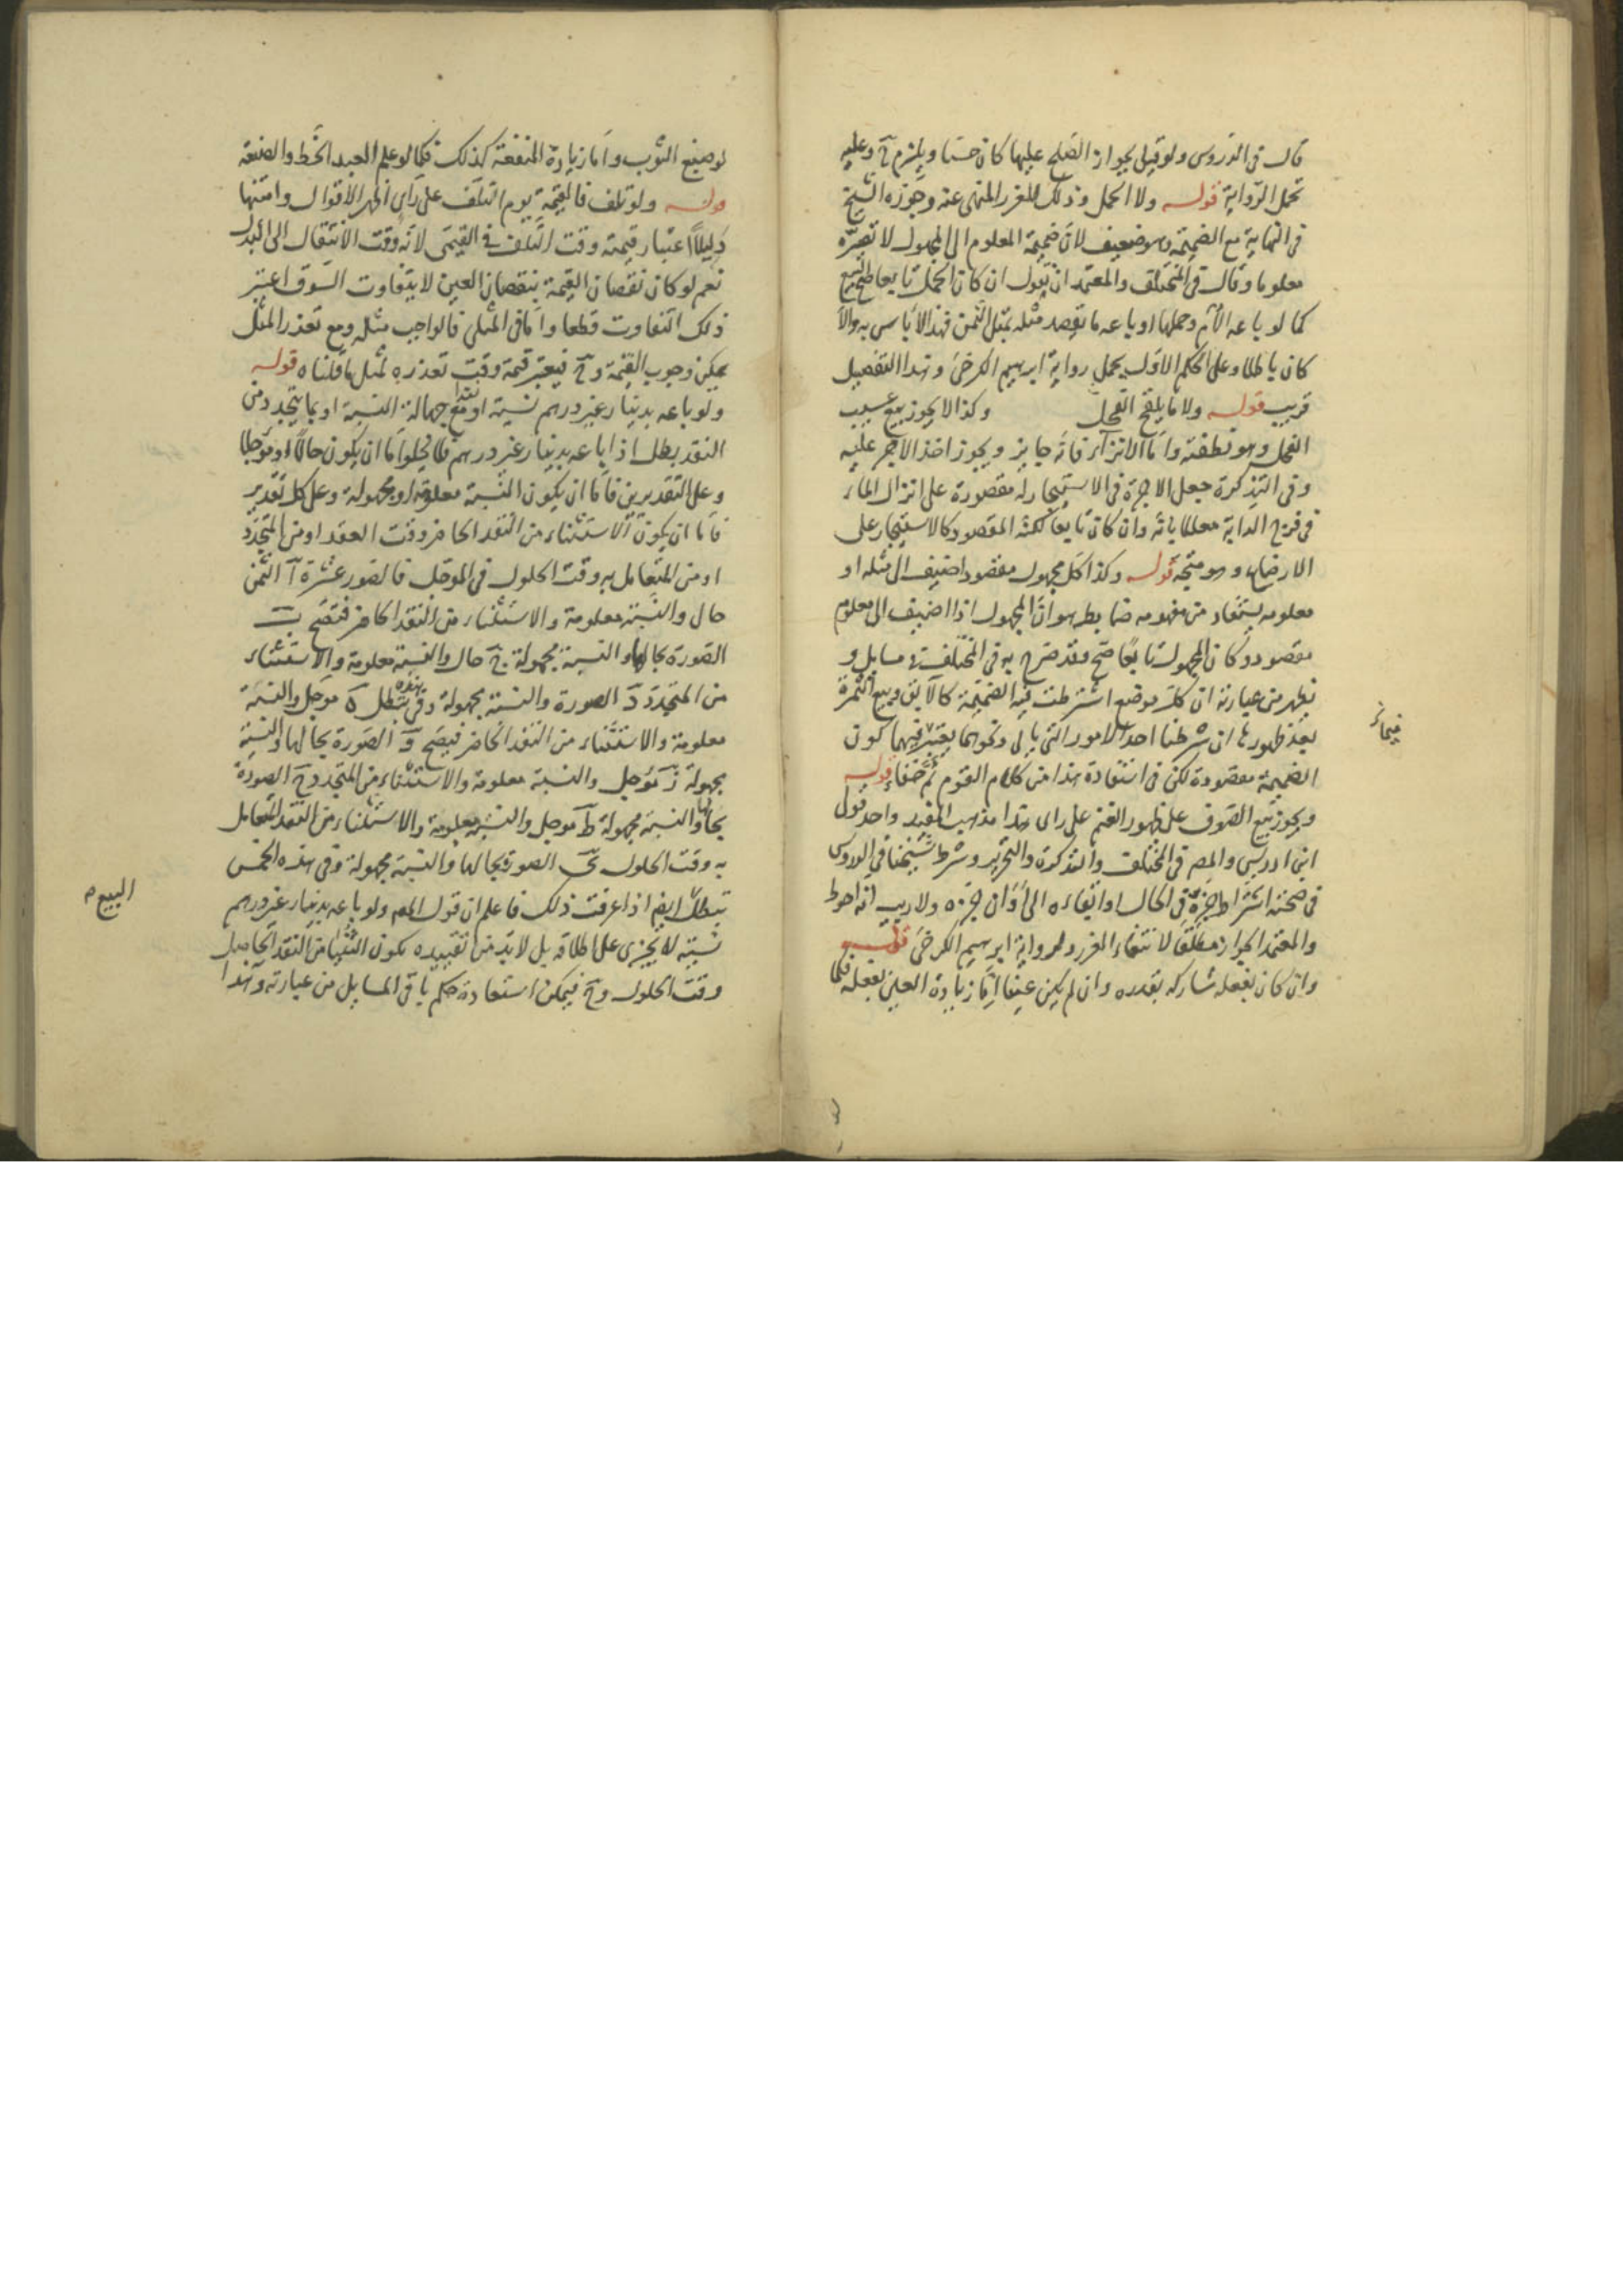 قال في الدروس ولو قيل بجواز الصلح عليها كان حسنا ويلتزم ح وعليه
تحمل الرواية قوله ولا الحمل وذلك للغرر المنهى عنه وجوزه الشيخ
في النهاية مع الضميمة وهو ضعيف لان ضميمة المعلوم الى المجهول لا تصيره
معلوما وقال في المختلف والمعتمد ان نقول ان كان الحمل تابعا صح البيع
كما لو باعه الام وحملها او باعه ما يقصد مثله بمثل الثمن فهذا لا باس به والا
كان باطلا وعلى الحكم الاول يحمل رواية ابرهيم الكرخي وهذا التفصيل
قريب قوله ولا ما يلقح الفحل وكذا لا يجوز بيع عسيب
الفحل وهو نطفته واما الانزاء فانه جايز ويجوز اخذ الاجر عليه
وفي التذكرة جعل الاجرة في الاستيجار له مقصورة على انزال الماء
في فرج الدابة معللا بانه وان كان تابعا لكنه المقصود كالاستيجار على
الارضاع وهو متجه قوله وكذا كل مجهول مقصود اضيف الى مثله او
معلوم يستفاد من مفهومه ضابط هو ان المجهول اذا اضيف الى معلوم
مقصود وكان المجهول تابعا صح وقد صرح به في المختلف في مسايل و
يظهر من عبارته ان كل موضع اشترطت فيه الضميمة كالآبق وبيع الثمرة
بعد ظهورها ان شرطنا احد الامور التي ياتي ونحوهما يعتبر فيهما كون
الضميمة مقصودة لكن في استفادة هذا من كلام القوم ثم خفاء قوله
ويجوز بيع الصوف على ظهور الغنم على راى هذا مذهب المفيد واحد قول
ابن ادريس والمص في المختلف والتذكرة والتحرير وشرط شيخنا في الدروس
في صحته اشتراط جزه في الحال او ابقاءه الى اوان جزه ولا ريب انه احوط
والمعتمد الجواز مطلقا لانتفاء الغرر ولرواية ابرهيم الكرخي قوله
وان كان بفعله شاركه بقدره وان لم يكن عينا اما زيادة العين بفعله فكما
لو صبغ الثوب واما زيادة المنفعة كذلك فكما لو علم العبد الخط والصنعة
قوله ولو تلف فالقيمة يوم التلف على راى اظهر الاقوال وامتنها
دليلا اعتبار قيمته وقت التلف في القيمي لانه وقت الانتقال الى البدل
نعم لو كان نقصان القيمة بنقصان العين لا بتفاوت السوق اعتبر
ذلك التفاوت قطعا واما في المثلي فالواجب مثله ومع تعذر المثل
يمكن وجوب القيمة وح فيعتبر قيمة وقت تعذره لمثل ما قلناه قوله
ولو باعه بدينار غير درهم نسية او نقدا مع جهالة النسبة او بما يتجدد من
النقد بطل اذا باعه بدينار غير درهم فلا يخلوا اما ان يكون حالا او مؤجلا
وعلى التقديرين فاما ان يكون النسبة معلومة او مجهولة وعلى كل تقدير
فاما ان يكون الاستثناء من النقد الحاضر وقت العقد او من المتجدد
او من المتعامل به وقت الحلول في الموجل فالصور عشرة آ الثمن
حال والنسبة معلومة والاستثناء من النقد الحاضر فتصح ب
الصورة بحالها والنسبة مجهولة ج حال والنسبة معلومة والاستثناء
من المتجدد د الصورة والنسبة مجهولة وفي هذه تبطل ه موجل والنسبة
معلومة والاستثناء من النقد الحاضر فيصح و الصورة بحالها والنسبة
مجهولة ز موجل والنسبة معلومة والاستثناء من المتجدد ح الصورة
بحالها والنسبة مجهولة ط موجل والنسبة معلومة والاستثناء من النقد المتعامل
به وقت الحلول ى الصورة بحالها والنسبة مجهولة وفي هذه الخمس
تبطل ايضا اذا عرفت ذلك فاعلم ان قول المص ولو باعه بدينار غير درهم
نسية لا يجزى على اطلاقه بل لا بد من تقييده بكون الثنيا من النقد الحاصل
وقت الحلول وح فيمكن استفادة حكم باقي المسايل من عبارته وهذا
البيع م